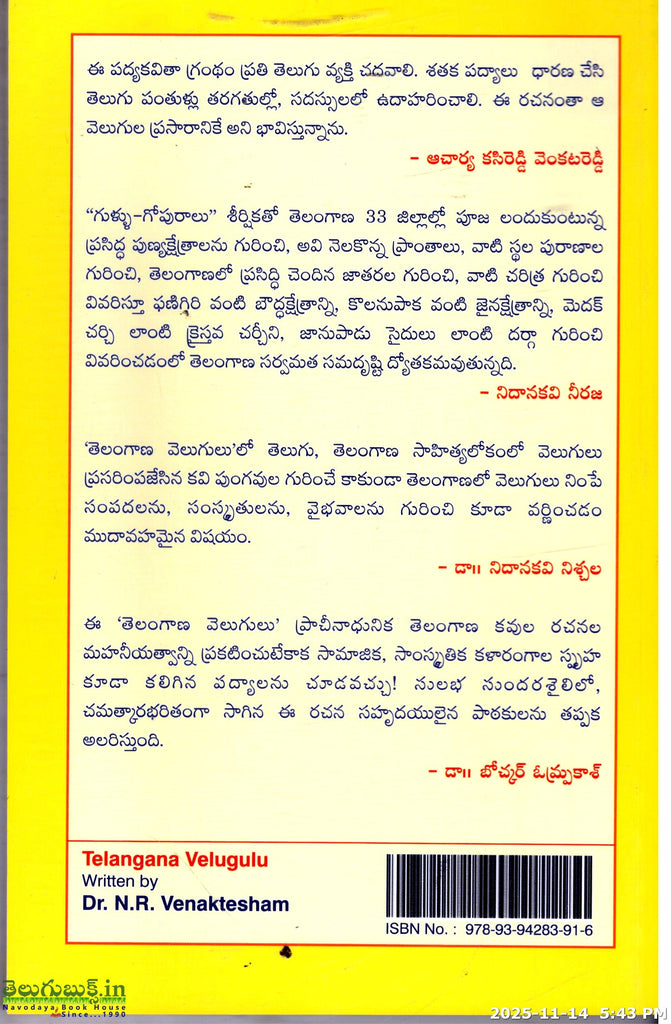 ఈ పద్యకవితా గ్రంథం ప్రతి తెలుగు వ్యక్తి చదవాలి. శతక పద్యాలు ధారణ చేసి
తెలుగు పంతుళ్లు తరగతుల్లో, సదస్సులలో ఉదాహరించాలి. ఈ రచనంతా ఆ
వెలుగుల ప్రసారానికే అని భావిస్తున్నాను.
- ఆచార్య కసిరెడ్డి వెంకటరెడ్డి
“గుళ్ళు-గోపురాలు” శీర్షికతో తెలంగాణ 33 జిల్లాల్లో పూజ లందుకుంటున్న
ప్రసిద్ధ పుణ్యక్షేత్రాలను గురించి, అవి నెలకొన్న ప్రాంతాలు, వాటి స్థల పురాణాల
గురించి, తెలంగాణలో ప్రసిద్ధి చెందిన జాతరల గురించి, వాటి చరిత్ర గురించి
వివరిస్తూ ఫణిగిరి వంటి బౌద్ధక్షేత్రాన్ని, కొలనుపాక వంటి జైనక్షేత్రాన్ని, మెదక్
చర్చి లాంటి క్రైస్తవ చర్చీని, జానుపాడు సైదులు లాంటి దర్గా గురించి
వివరించడంలో తెలంగాణ సర్వమత సమదృష్టి ద్యోతకమవుతున్నది.
- నిదానకవి నీరజ
‘తెలంగాణ వెలుగులు’లో తెలుగు, తెలంగాణ సాహిత్యలోకంలో వెలుగులు
ప్రసరింపజేసిన కవి పుంగవుల గురించే కాకుండా తెలంగాణలో వెలుగులు నింపే
సంపదలను, సంస్కృతులను, వైభవాలను గురించి కూడా వర్ణించడం
ముదావహమైన విషయం.
- డా॥ నిదానకవి నిశ్చల
ఈ ‘తెలంగాణ వెలుగులు’ ప్రాచీనాధునిక తెలంగాణ కవుల రచనల
మహనీయత్వాన్ని ప్రకటించుటేకాక సామాజిక, సాంస్కృతిక కళారంగాల స్పృహ
కూడా కలిగిన పద్యాలను చూడవచ్చు! సులభ సుందరశైలిలో,
చమత్కారభరితంగా సాగిన ఈ రచన సహృదయులైన పాఠకులను తప్పక
అలరిస్తుంది.
- డా॥ బోచ్కర్ ఓమ్ప్రకాశ్
Telangana Velugulu
Written by
Dr. N.R. Venaktesham
ISBN No. : 978-93-94283-91-6
తెలుగుబుక్స్.in
Navodaya Book House
Since...1990
2025-11-14 5:43 PM